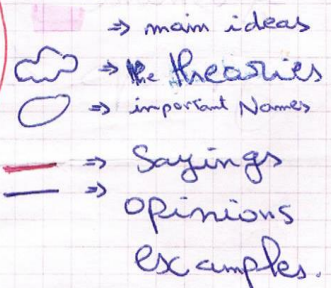 ⇒ main ideas
⇒ the theories
⇒ important Names
⇒ Sayings
⇒ opinions
examples.